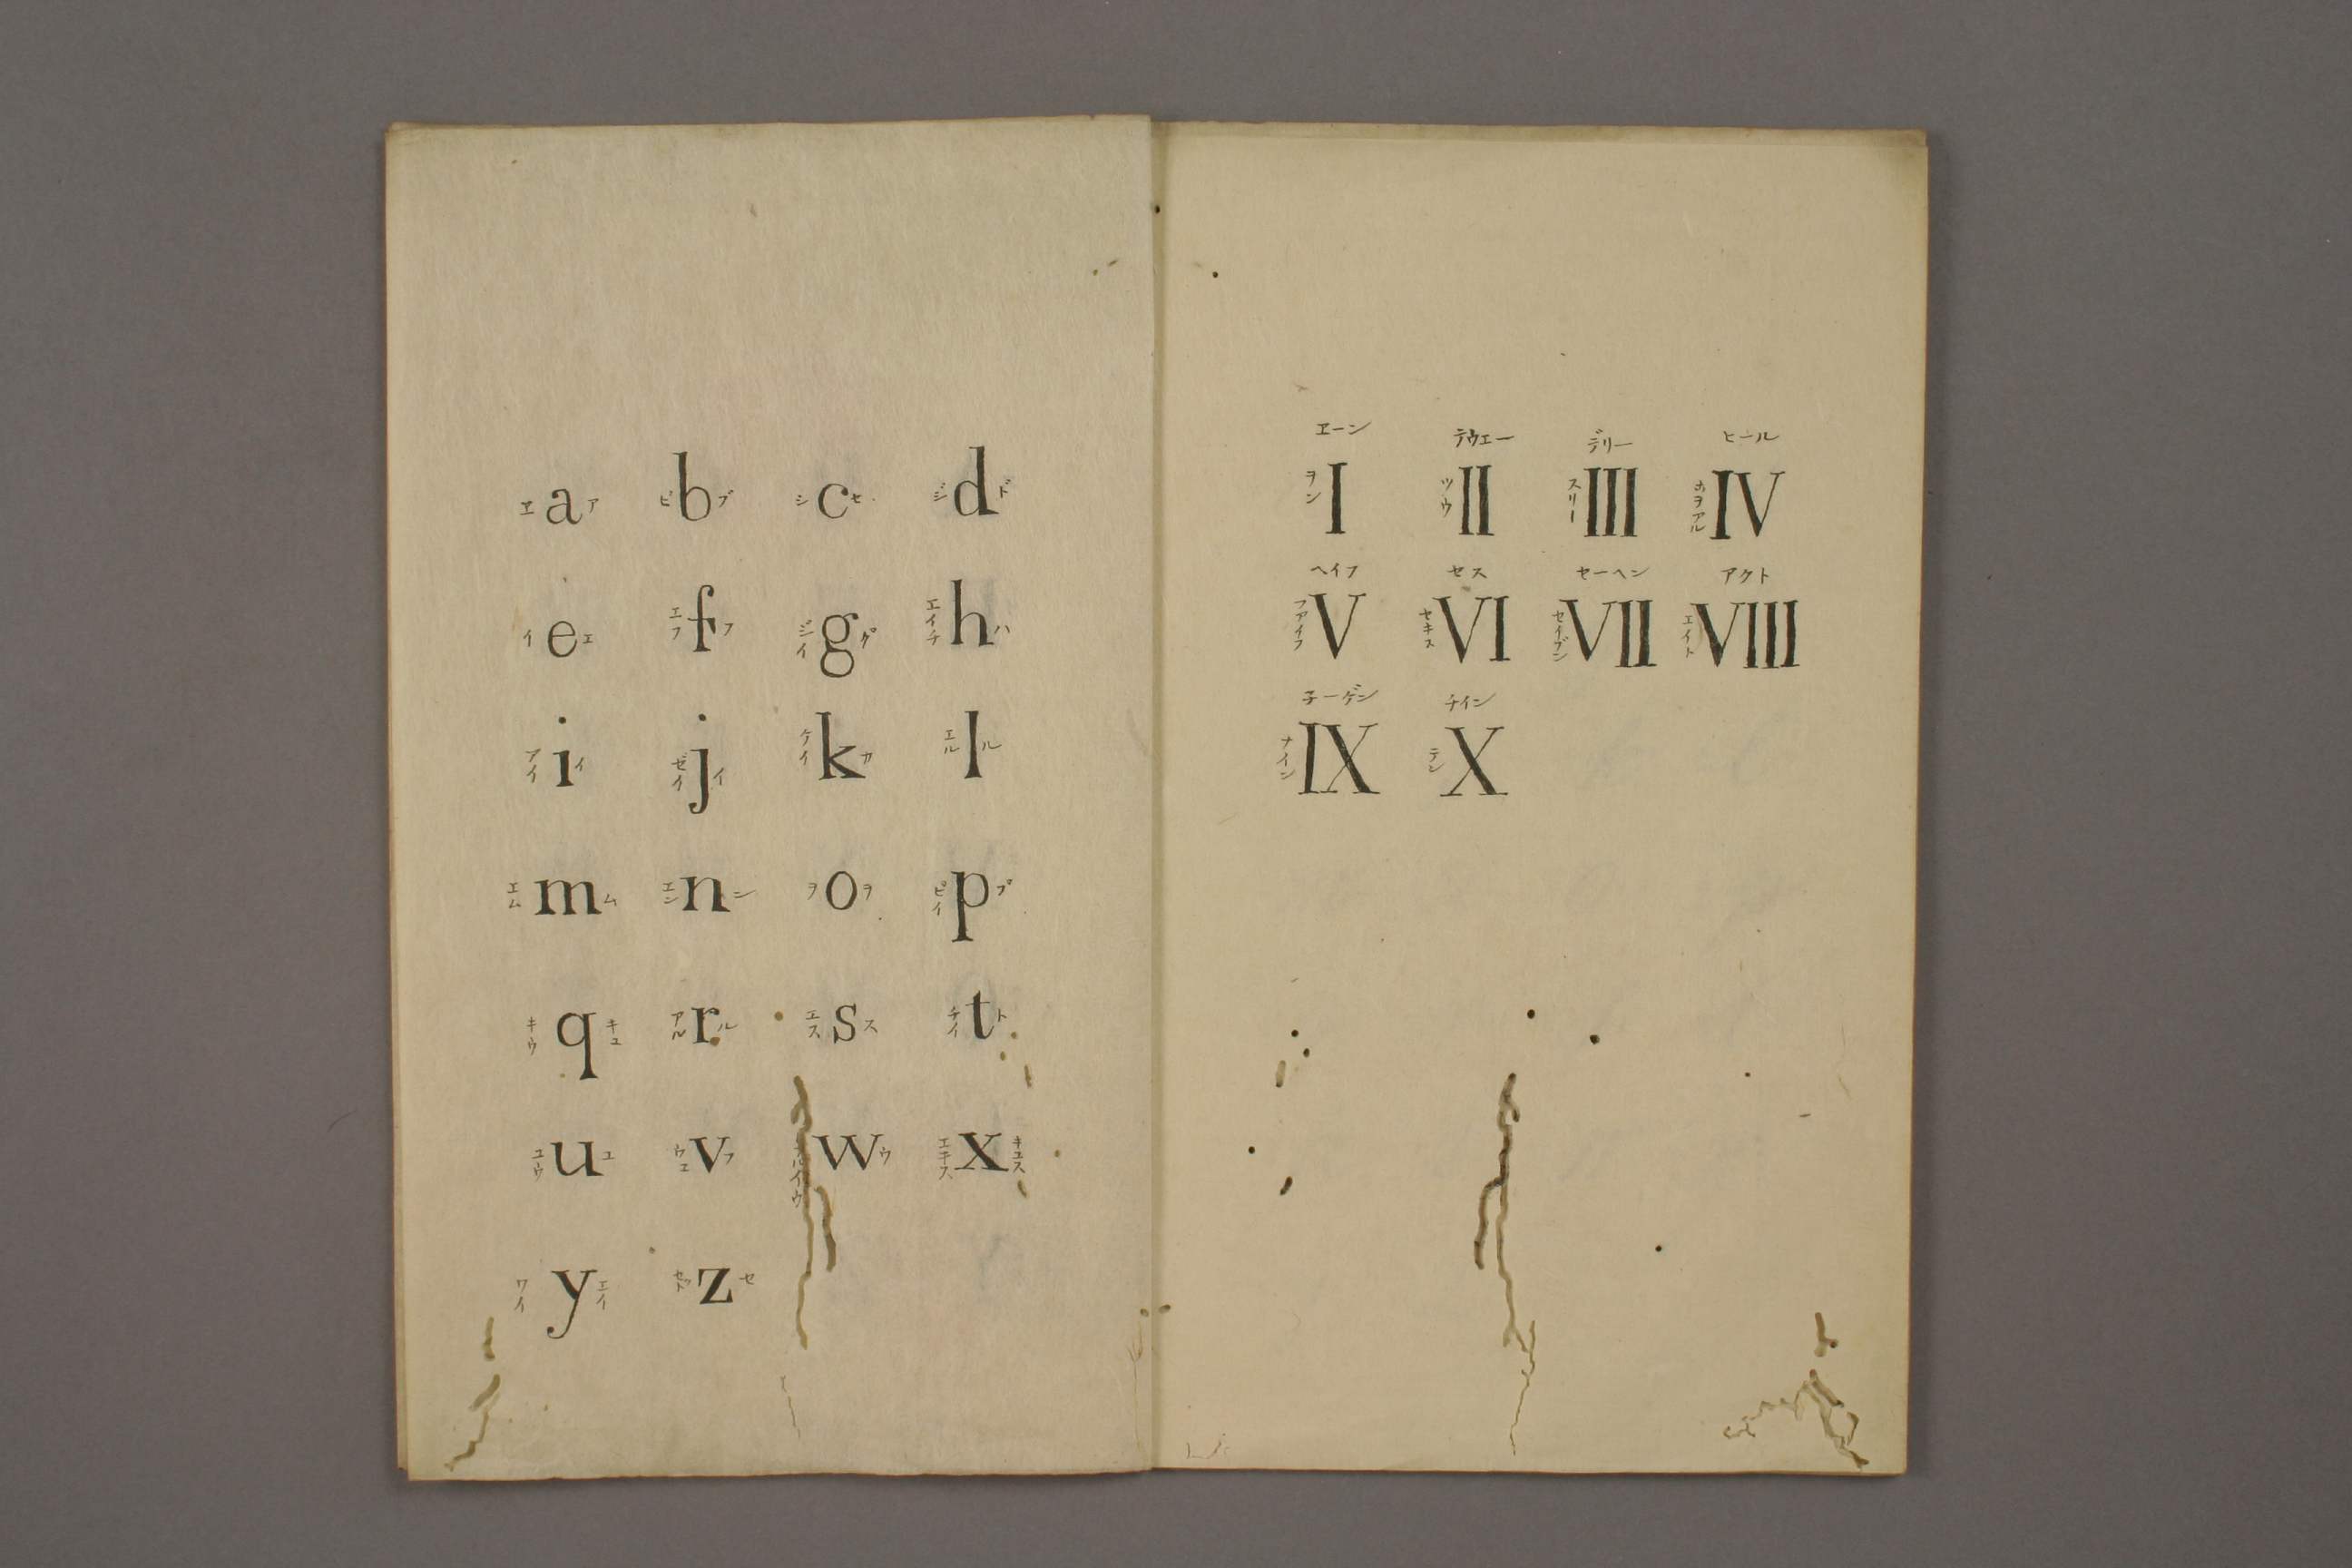 ヱ a ア ビ b ブ シ c セ ジ d ド
イ e エ エフ f フ ジイ g グ エイチ h ハ
アイ i イ ゼイ j イ ケイ k カ エル l ル
エム m ム エン n ン ヲ o ヲ ピイ p プ
キウ q キユ アル r ル エス s ス チイ t ト
ユウ u ユ ウエ v フ w ウ エキス x キユス
ワイ y エイ z セ
ヱーン テウエー デリー ヒール
ヲン I ツウ II スリー III ホヲアル IV
ヘイフ セス セーヘン アクト
ファイフ V セキス VI セイブン VII エイト VIII
子ーゲン チイン
ナイン IX テン X